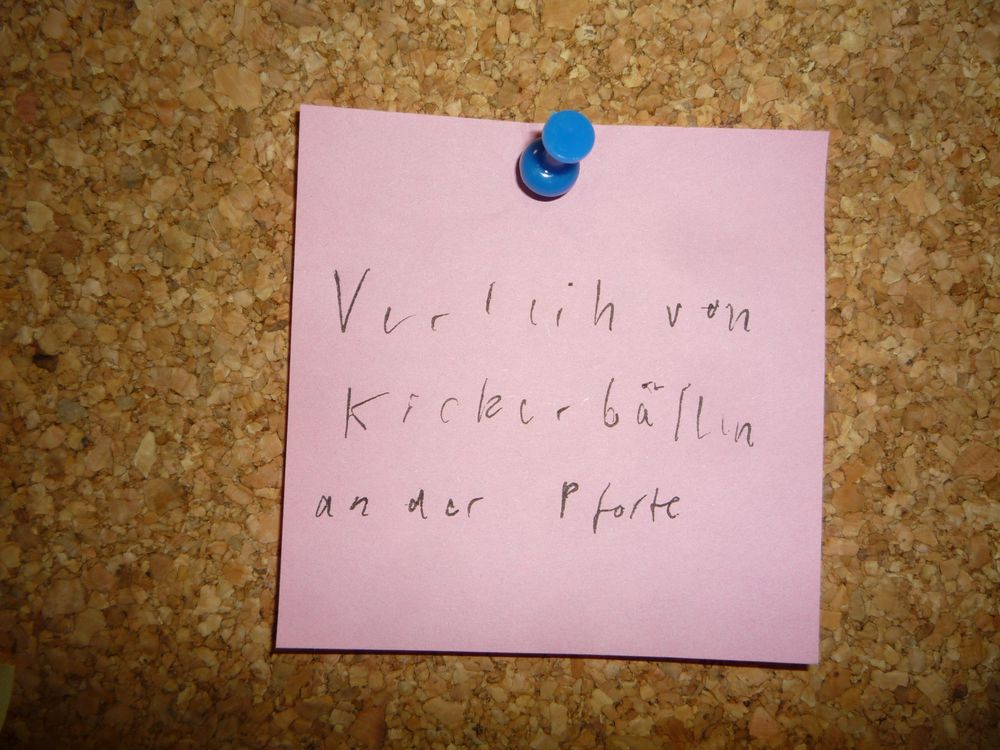 Verleih von
Kickerbällen
an der Pforte